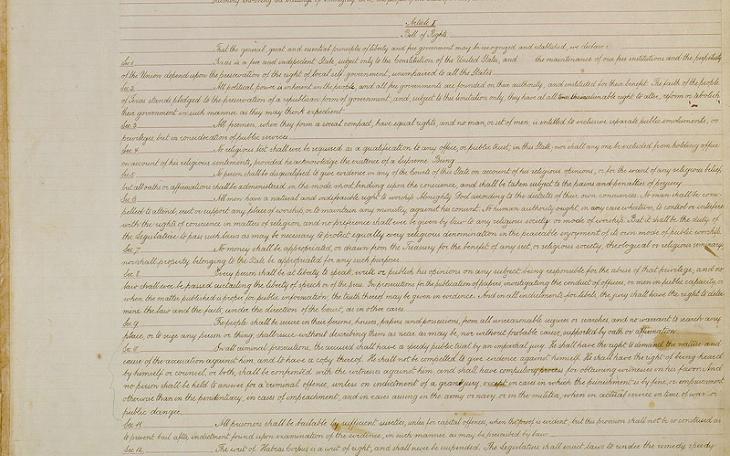 Article I
Bill of Rights
That the general, great and essential principles of liberty and free government may be recognized and established, we declare:
Sec 1 Texas is a free and independent State, subject only to the Constitution of the United States, and the maintenance of our free institutions and the perpetuity
of the Union depend upon the preservation of the right of local self government, unimpaired to all the States.
Sec 2 All political power is inherent in the people, and all free governments are founded on their authority, and instituted for their benefit. The faith of the people
of Texas stands pledged to the preservation of a republican form of government, and, subject to this limitation only, they have at all times the inalienable right to alter, reform or abolish
their government in such manner as they may think expedient.
Sec 3 All freemen, when they form a social compact, have equal rights, and no man, or set of men, is entitled to exclusive separate public emoluments, or
privileges, but in consideration of public services.
Sec 4 No religious test shall ever be required as a qualification to any office, or public trust, in this State; nor shall any one be excluded from holding office
on account of his religious sentiments, provided he acknowledge the existence of a Supreme Being.
Sec 5 No person shall be disqualified to give evidence in any of the Courts of this State on account of his religious opinions, or for the want of any religious belief,
but all oaths or affirmations shall be administered in the mode most binding upon the conscience, and shall be taken subject to the pains and penalties of perjury.
Sec 6 All men have a natural and indefeasible right to worship Almighty God according to the dictates of their own consciences. No man shall be com-
pelled to attend, erect or support any place of worship, or to maintain any ministry against his consent. No human authority ought, in any case whatever, to control or interfere
with the rights of conscience in matters of religion, and no preference shall ever be given by law to any religious society or mode of worship. But it shall be the duty of
the Legislature to pass such laws as may be necessary to protect equally every religious denomination in the peaceable enjoyment of its own mode of public worship.
Sec 7 No money shall be appropriated, or drawn from the Treasury for the benefit of any sect, or religious society, theological or religious seminary,
nor shall property belonging to the State be appropriated for any such purposes.
Sec 8 Every person shall be at liberty to speak, write or publish his opinions on any subject, being responsible for the abuse of that privilege, and no
law shall ever be passed curtailing the liberty of speech or of the press. In prosecutions for the publication of papers investigating the conduct of officers, or men in public capacity, or
when the matter published is proper for public information, the truth thereof may be given in evidence. And in all indictments for libels, the jury shall have the right to deter-
mine the law and the facts, under the direction of the court, as in other cases.
Sec 9 The people shall be secure in their persons, houses, papers and possessions, from all unreasonable seizures or searches, and no warrant to search any
place, or to seize any person or thing, shall issue without describing them as near as may be, nor without probable cause, supported by oath or affirmation.
Sec 10 In all criminal prosecutions, the accused shall have a speedy public trial by an impartial jury. He shall have the right to demand the nature and
cause of the accusation against him, and to have a copy thereof. He shall not be compelled to give evidence against himself. He shall have the right of being heard
by himself or counsel, or both; shall be confronted with the witnesses against him, and shall have compulsory process for obtaining witnesses in his favor. And
no person shall be held to answer for a criminal offense, unless on indictment of a grand jury, except in cases in which the punishment is by fine, or imprisonment
otherwise than in the penitentiary, in cases of impeachment, and in cases arising in the army or navy, or in the militia, when in actual service in time of war or
public danger.
Sec 11 All prisoners shall be bailable by sufficient sureties, unless for capital offences, when the proof is evident; but this provision shall not be so construed as
to prevent bail after indictment found upon examination of the evidence, in such manner as may be prescribed by law.
Sec 12 The writ of Habeas Corpus is a writ of right, and shall never be suspended. The Legislature shall enact laws to render the remedy speedy